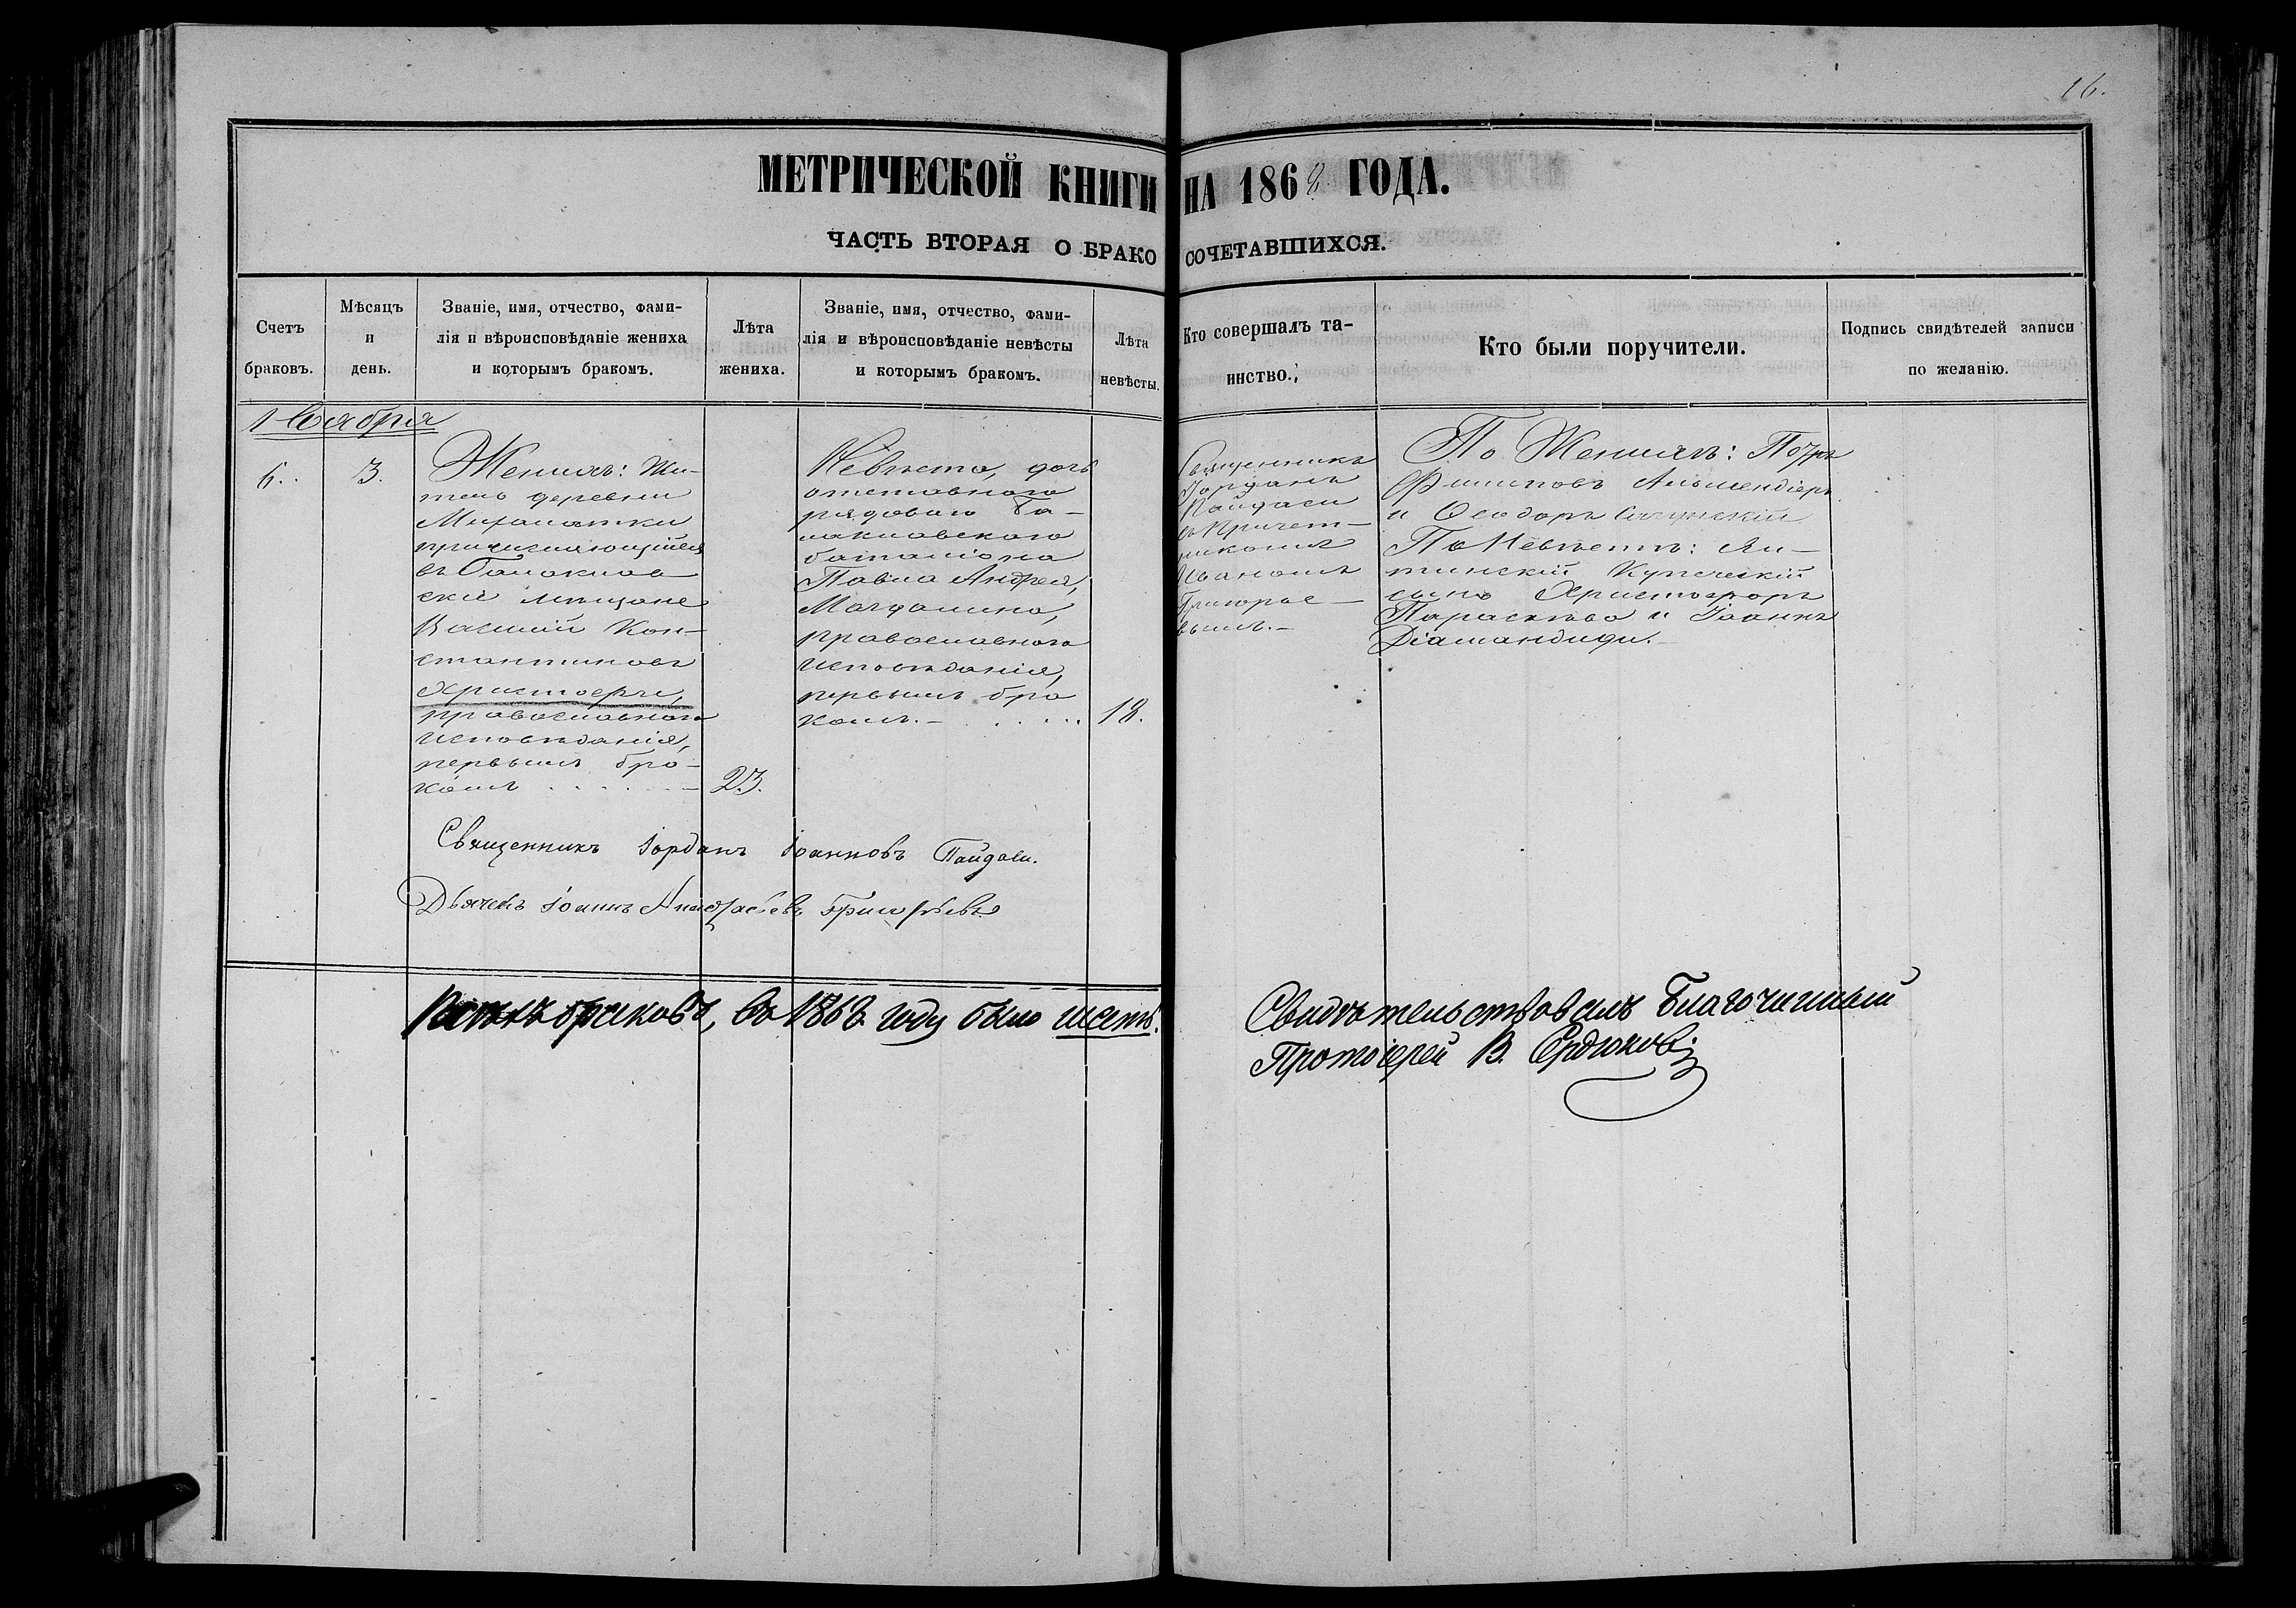 16.
МЕТРИЧЕСКОЙ КНИГИ НА 1868 ГОДА.
ЧАСТЬ ВТОРАЯ О БРАКОСОЧЕТАВШИХСЯ.
Счетъ
браковъ.
Мѣсяцъ
и
день.
Званіе, имя, отчество, фами-
лія и вѣроисповѣданіе жениха
и которымъ бракомъ.
Лѣта
жениха.
Званіе, имя, отчество, фами-
лія и вѣроисповѣданіе невѣсты
и которымъ бракомъ.
Лѣта
невѣсты.
Кто совершалъ та-
инство.
Кто были поручители.
Подпись свидѣтелей записи
по желанію.
Ноября
6.
3.
Женихъ: Жи-
тель деревни
Мухалатки
причисляющійся
въ Балаклав
скіе мѣщане
Василій Кон-
стантиновъ
Христофи,
православнаго
исповѣданія,
первымъ бра-
комъ
23.
Невѣста, дочь
отставного
рядового Ба-
лаклавского
баталіона
Павла Андрея,
Магдалина,
православного
исповѣданія,
первымъ бра
комъ.
18.
Священникъ
Іорданъ
Пайдаси
съ Причет-
никомъ
Иваномъ
Григорье-
вымъ.
По Женихѣ: Петръ
Филиповъ
и Ѳеодоръ
По Невѣстѣ: Ял-
тинскій Купеческій
сынъ Христофоръ
Параскева и Іоаннъ
Діамандиди.
Священникъ Іорданъ Іоанновъ Пайдаси.
Дьячекъ Іоаннъ Григорьевъ
браковъ, въ 1868 году было шесть.
Свидѣтельствовалъ Благочинный
Протоіерей В. Сердюковъ